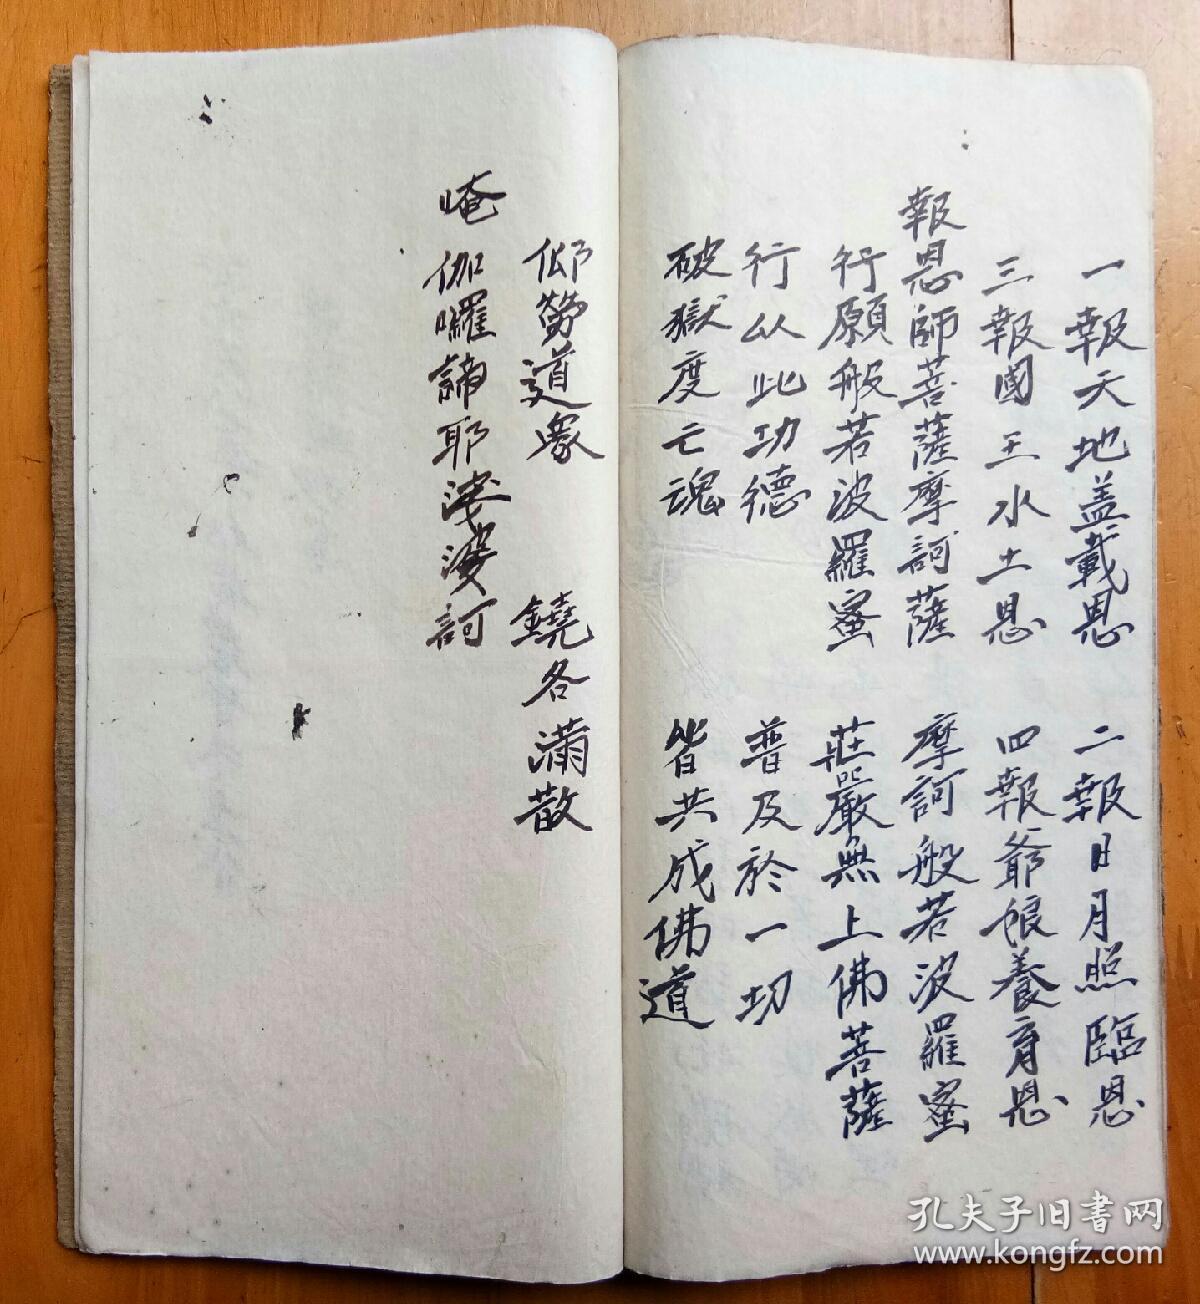 一報天地盖載恩　二報日月照臨恩
三報國王水土恩　四報爺娘養育恩
報恩師菩薩摩訶薩　摩訶般若波羅蜜
行願般若波羅蜜　莊嚴無上佛菩薩
行从此功德　普及於一切
破獄度亡魂　皆共成佛道
仰勞道衆　鐃各满散
唵伽囉諦耶娑婆訶
孔夫子旧書网
www.kongfz.com